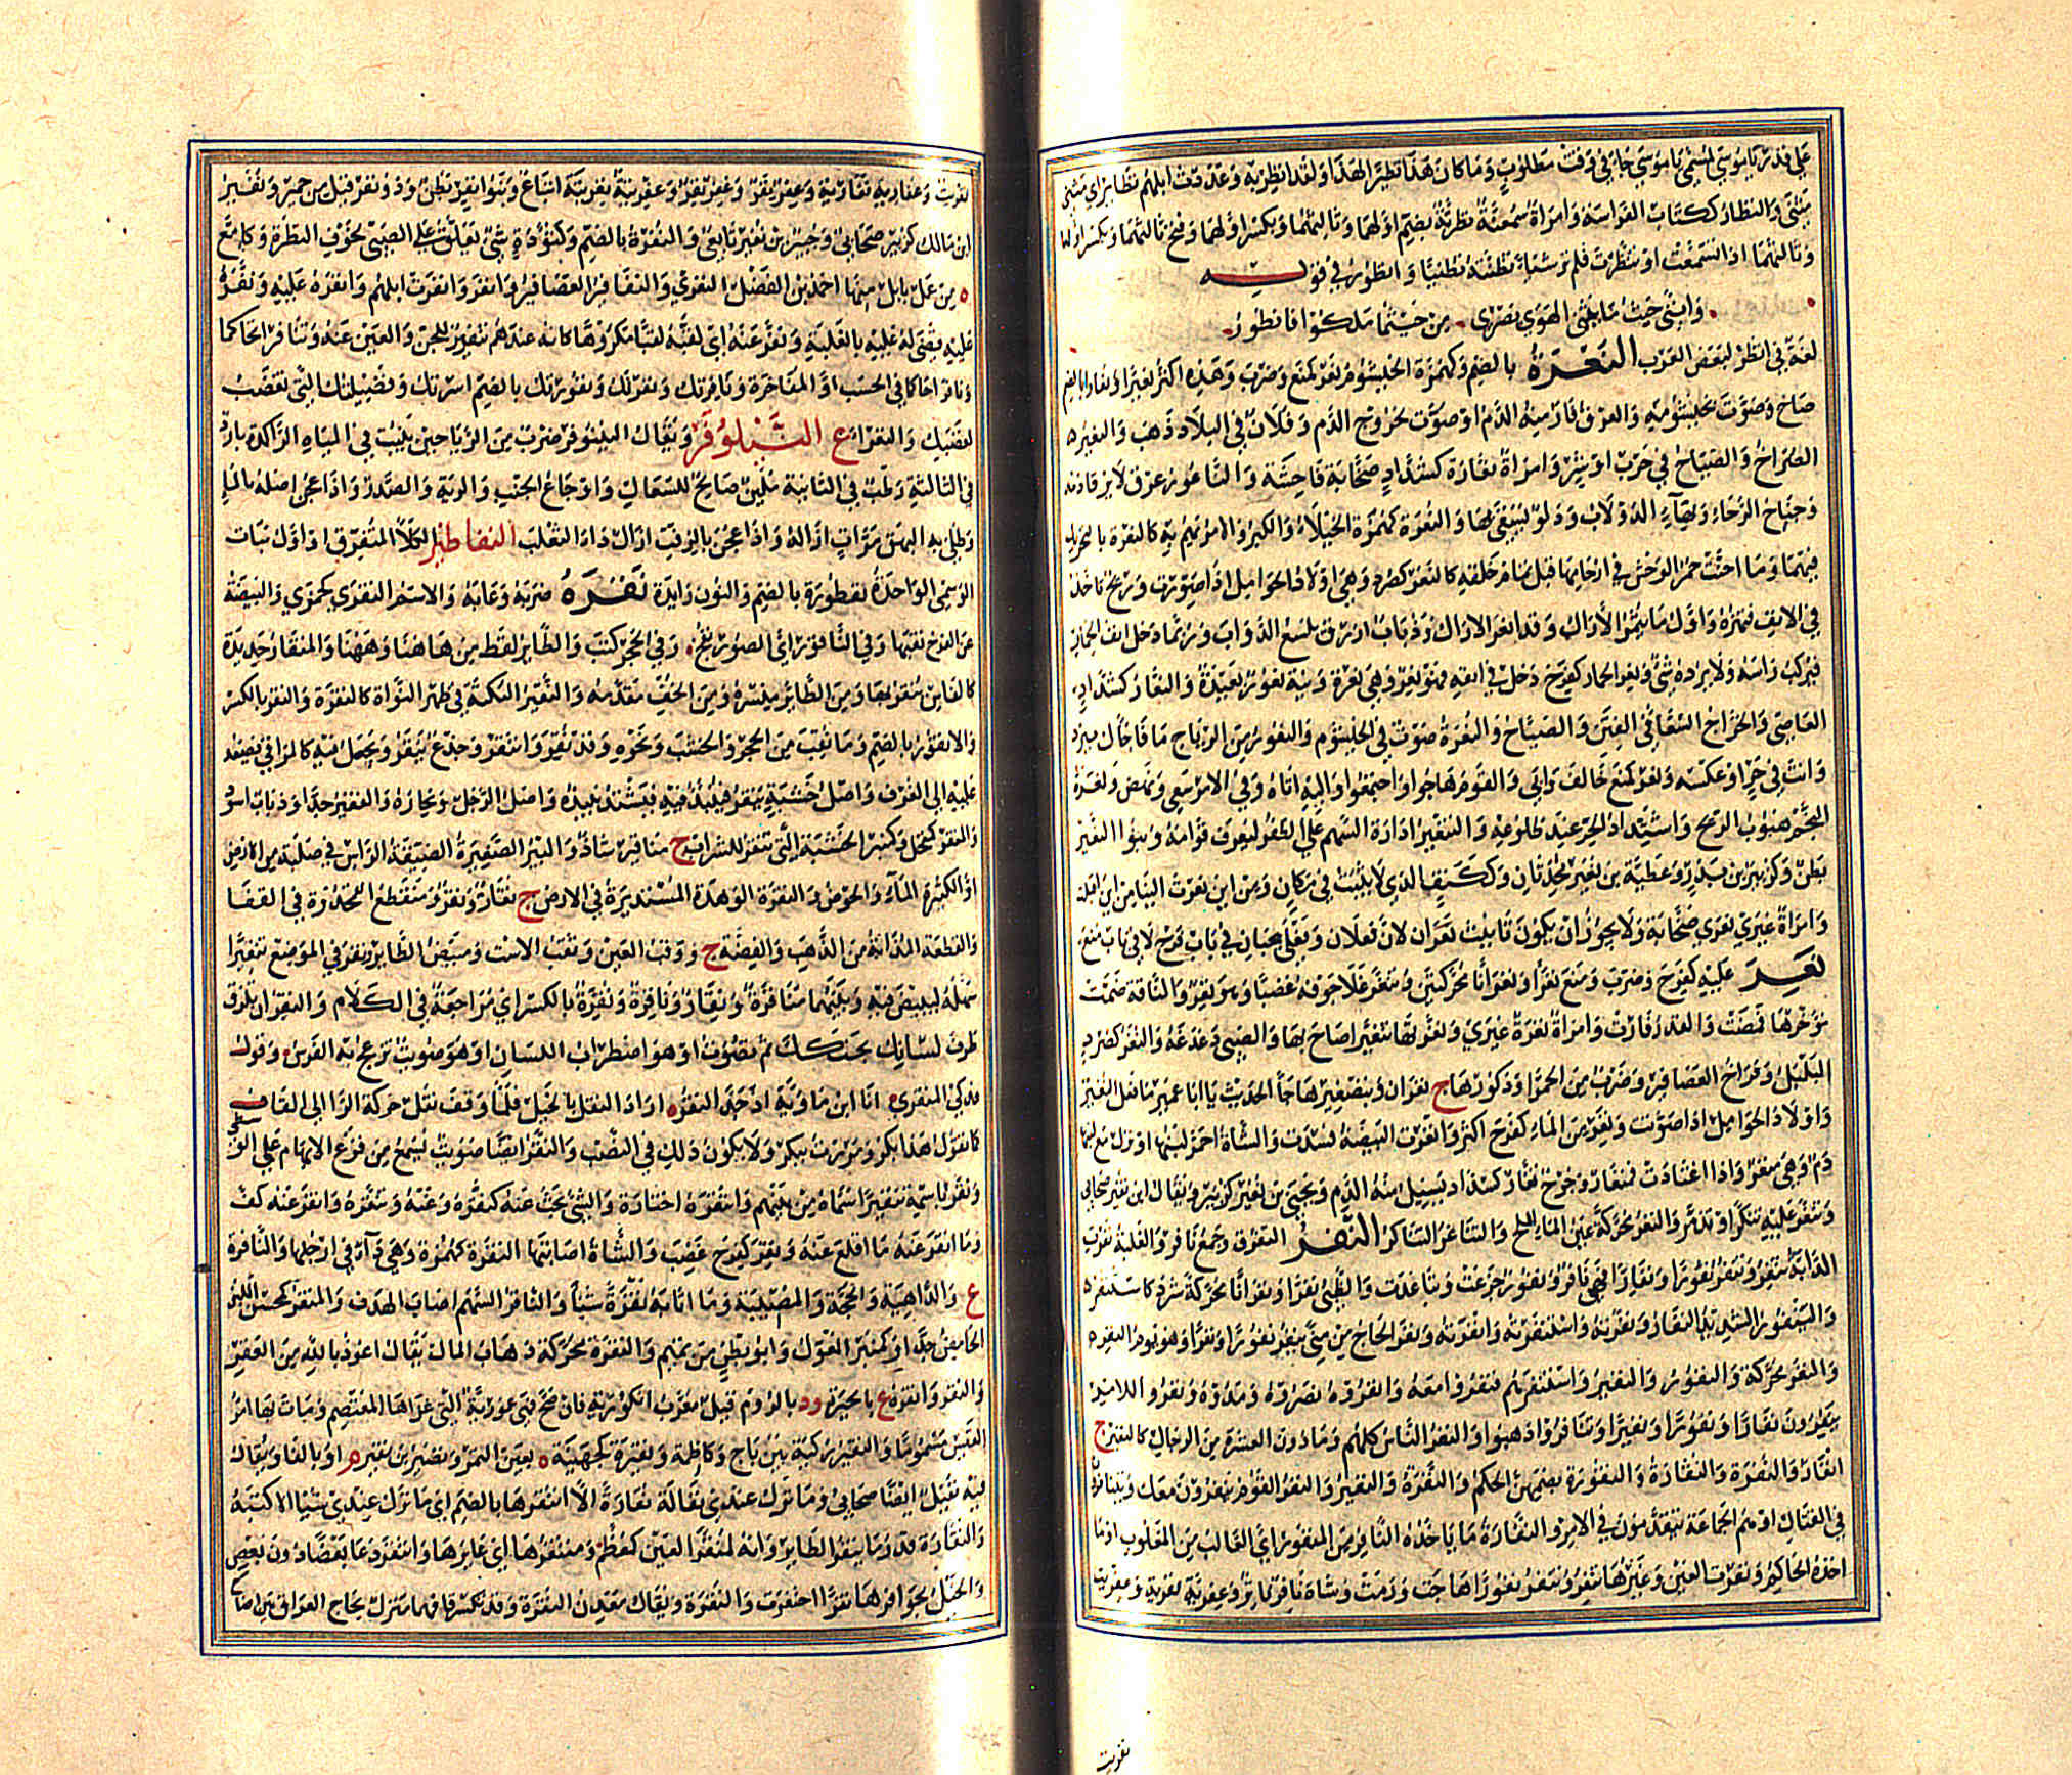 عَلى قَدَرٍ يا مُوسى لمُسَمّى يا موسى جاء في وقتٍ مطلوبٍ وما كان هذا نظيرًا لهذا ولقد انظر به وعددت ابلهم نظائر اي مثنى
مثنى والنظار ككتاب الفراسة وامرأة سمعنة نظرنة بضم اولهما وثالثهما وبكسر اولهما وفتح ثالثهما وبكسر اولهما
وثالثهما اذا تسمعت او تنظرت فلم تر شياء تظنته تظنيا وانظور في قوله
وانني حيث ما يثنى الهوى بصري من حيثما سلكوا فانظور
لغة في انظر لبعض العرب النعرة بالضم وكهمزة الخيشوم نعر كمنع وضرب وهذه اكثر نعيرا ونعارا بالضم
صاح وصوت بخيشومه والعرق فار منه الدم او صوت لخروج الدم وفلان في البلاد ذهب والنعير
الصراخ والصياح في حرب او شر وامراة نعارة كشداد صخابة فاحشة والناعور عرق لا يرقا دمه
وجناح الرحاء وبهاء الدولاب ودلو يستقى بها والنعرة كهمزة الخيلاء والكبر والامر يهم به كالنعرة بالتحريك
فيهما وما اجنت حمر الوحش في ارحامها قبل تمام خلقه كالنعر كصرد وهي اولاد الحوامل اذا صوتت وريح تاخذ
في الانف فتهزه واول ما يثمر الاراك وقد انعر الاراك وذباب ازرق يلسع الدواب وربما دخل انف الحمار
فيركب راسه ولا يرده شي ونعر الحمار كفرح دخل في انفه فهو نعر وهي نعرة ونية نعور بعيدة والنعار كشداد
العاصي والخراج السعاء في الفتن والصياح والنعرة صوت في الخيشوم والنعور من الرياح ما فاجاك ببرد
وانت في حر او عكسه ونعر كمنع خالف وابى والقوم هاجوا واجتمعوا واليه اتاه وفي الامر سعى ونهض ونعرة
النجم هبوب الريح واشتداد الحر عند طلوعه والتنعير ادارة السهم على الظفر ليعرف قوامه وبنو النعير
بطن وكزبير بن بدر وعطية بن نعير محدثان وككتف الذي لا يثبت في مكان ومن اين نعرت الينا من اين اقبلت
وامراة غيرى نعرى صخابة ولا يجوز ان يكون تانيث نعران لان فعلان وفعلى يجيان في باب فرح لا في باب منع
نغر عليه كفرح وضرب ومنع نغرا ونغرانا محركتين وتنغر غلا جوفه غضبا وهو نغر والناقة ضمت
مؤخرها فمضت والقدر فارت وامراة نغرة غيرى ونغر بها تنغيرا صاح بها والصبي دغدغه والنغر كصرد
البلبل وفراخ العصافير وضرب من الحمر او ذكورها ج نغران وبتصغيرها جاء الحديث يا ابا عمير ما فعل النغير
واولاد الحوامل اذا صوتت ونغر من الماء كفرح اكثر وانغرت البيضة فسدت والشاة احمر لبنها او نزل مع لبنها
دم وهي منغر واذا اعتادت فمنغار وجرح نغار كشداد يسيل منه الدم ويحيى بن نغير كزبير ويقال ابن نغير صحابي
وتنغر عليه تنكر او تذمر والنغر محركة عين الماء الملح والتناغر التناكر النفر التفرق وجمع نافر والغلبة نفرت
الدابة تنفر وتنفر نفورا ونفارا فهي نافر ونفور جزعت وتباعدت والظبي نفرا ونفرانا محركة شرد كاستنفره
واليَنفور الشديد النفار ونفرته واستنفرته وانفرته ونفر الحاج من منى ينفر نفورا ونفرا وهو يوم النفر
والنفر محركة والنفور والنفير واستنفرهم فنفروا معه وانفروه نصروه ومدوه ونفروا للامر
ينفرون نفارا ونفورا ونفيرا وتنافروا ذهبوا والنفر الناس كلهم وما دون العشرة من الرجال كالنفير ج
انفار والنفرة والنفارة والنفورة بضمهن الحكم والنفرة والنفير والنفر القوم ينفرون معك ويتنافرون
في القتال او هم الجماعة يتقدمون في الامر والنفارة ما ياخذه النافر من المنفور اي الغالب من المغلوب او ما
اخذه الحاكم ونفرت العين وغيرها تنفر وتنفر نفورا هاجت وورمت وشاة نافر ناثر وعفرية نفرية وعفريت
نفريت
نفريت وعفارية نفارية وعفر نفر وعفر نفر وعفريتة نفريتة اتباع وبنو نفر بطن وذو نفر قيل من حمير ونفير
ابن مالك كزبير صحابي وجبير بن نفير تابعي والنفرة بالضم وكتؤدة شي يعلق على الصبي لخوف النظرة وكامع
ة من عمل بابل منها احمد بن الفضل النفري والنفافير العصافير وانفر وانفرت ابلهم وانفره عليه ونفره
عليه قضى له عليه بالغلبة ونفر عنه اي لقبه لقبا مكروها كانه عندهم تنفير للجن والعين عنه وتنافرا تحاكما
ونافر احاكما في الحسب او المفاخرة ونافرتك ونفرتك ونفورتك بالضم اسرتك وفصيلتك التي تغضب
لغضبك والنفراء ع النيلوفر ويقال النينوفر ضرب من الرياحين ينبت في المياه الراكدة بارد
في الثالثة رطب في الثانية ملين صالح للسعال واوجاع الجنب والرية والصدر واذا عجن اصله بالماء
وطلي به البهق مرات ازاله واذا عجن بالزفت ازال داء الثعلب النفاطير الكلأ المتفرق او اول نبات
الوسمي الواحدة نفطورة بالضم والنون زايدة نقره ضربه وعابه والاسم النقرى كجمزى والبيضة
عن الفرخ نقبها وفي الناقور اي الصور نفخ وفي الحجر كتب والطاير لقط من هاهنا وههنا والمنقار حديدة
كالفاس ينقر بها ومن الطاير منسره ومن الخف مقدمه والنقير النكتة في ظهر النواة كالنقرة والنقر بالكسر
والانقور بالضم وما نقب من الحجر والخشب ونحوه وقد نقر وانتقر وجذع ينقر ويجعل فيه كالمراقي يصعد
عليه الى الغرف واصل خشبة ينقر فينبذ فيه فيشتد نبيذه واصل الرجل ونجاره والفقير جدا وذباب اسود
والمنقر كمنخل وكمنبر الخشبة التي تنقر للشراب ج مناقير شاذ والبير الصغيرة الضيقة الراس في صلبة من الارض
او الكثيرة الماء والحوض والنقرة الوهدة المستديرة في الارض ج نقار ونقر ومنقطع القمحدوة في القفا
والقطعة المذابة من الذهب والفضة ج ووقب العين وثقب الاست ومبيض الطاير ونقر في الموضع تنقيرا
سهله ليبيض فيه وبينهما مناقرة ونقار وناقرة ونقرة بالكسر اي مراجعة في الكلام والنقر ان تلزق
طرف لسانك بحنكك ثم تصوت او هو اضطراب اللسان او هو صويت تزعج به الفرس وقول
فدكي المنقري انا ابن ماوية اذ جد النقر اراد النقر بالخيل فلما وقف نقل حركة الرا الى القاف
كما تقول هذا بكر ومررت ببكر ولا يكون ذلك في النصب والنقر ايضا صويت يسمع من قرع الابهام على الوسطى
ونقر باسمه تنقيرا سماه من بينهم وانتقره اختاره والشي بحث عنه كنقره وعنه وتنقره وانقر عنه كف
وما انقر عنه ما اقلع عنه ونقر كفرح غضب والشاة اصابتها النقرة كهمزة وهي داء في ارجلها والناقرة
ع والداهية والحجة والمصيبة وما اثابه نقرة شيأ والناقر السهم اصاب الهدف والمنقر كمحسن اللبن
الحامض جدا وكمنبر المعول وابو بطن من تميم والنقرة محركة ذهاب المال يقال اعوذ بالله من العقر
والنقر وانقرة ع بالحيرة ود بالروم قيل معرب انكورية فان صح فهي عمورية التي غزاها المعتصم ومات بها امرؤ
القيس مسموما والنقير ركية بين ثاج وكاظمة ونقيرة كجهينة ة بعين التمر ونضير بن نقير او بالفا ويقال
فيه نقيل ايضا صحابي وما ترك عندي نقارة الا انتقرها بالضم اي ما ترك عندي شيا الا كتبه
والنقارة قدر ما ينقر الطاير وانه لمنقر العين كمعظم ومنتقرها اي غايرها وانتقر دعا بعضا دون بعض
والخيل بحوافرها نقرا احتفرت والنقرة ويقال معدن النقرة وقد تكسر قافهما منزل لحاج العراق بين اضاخ